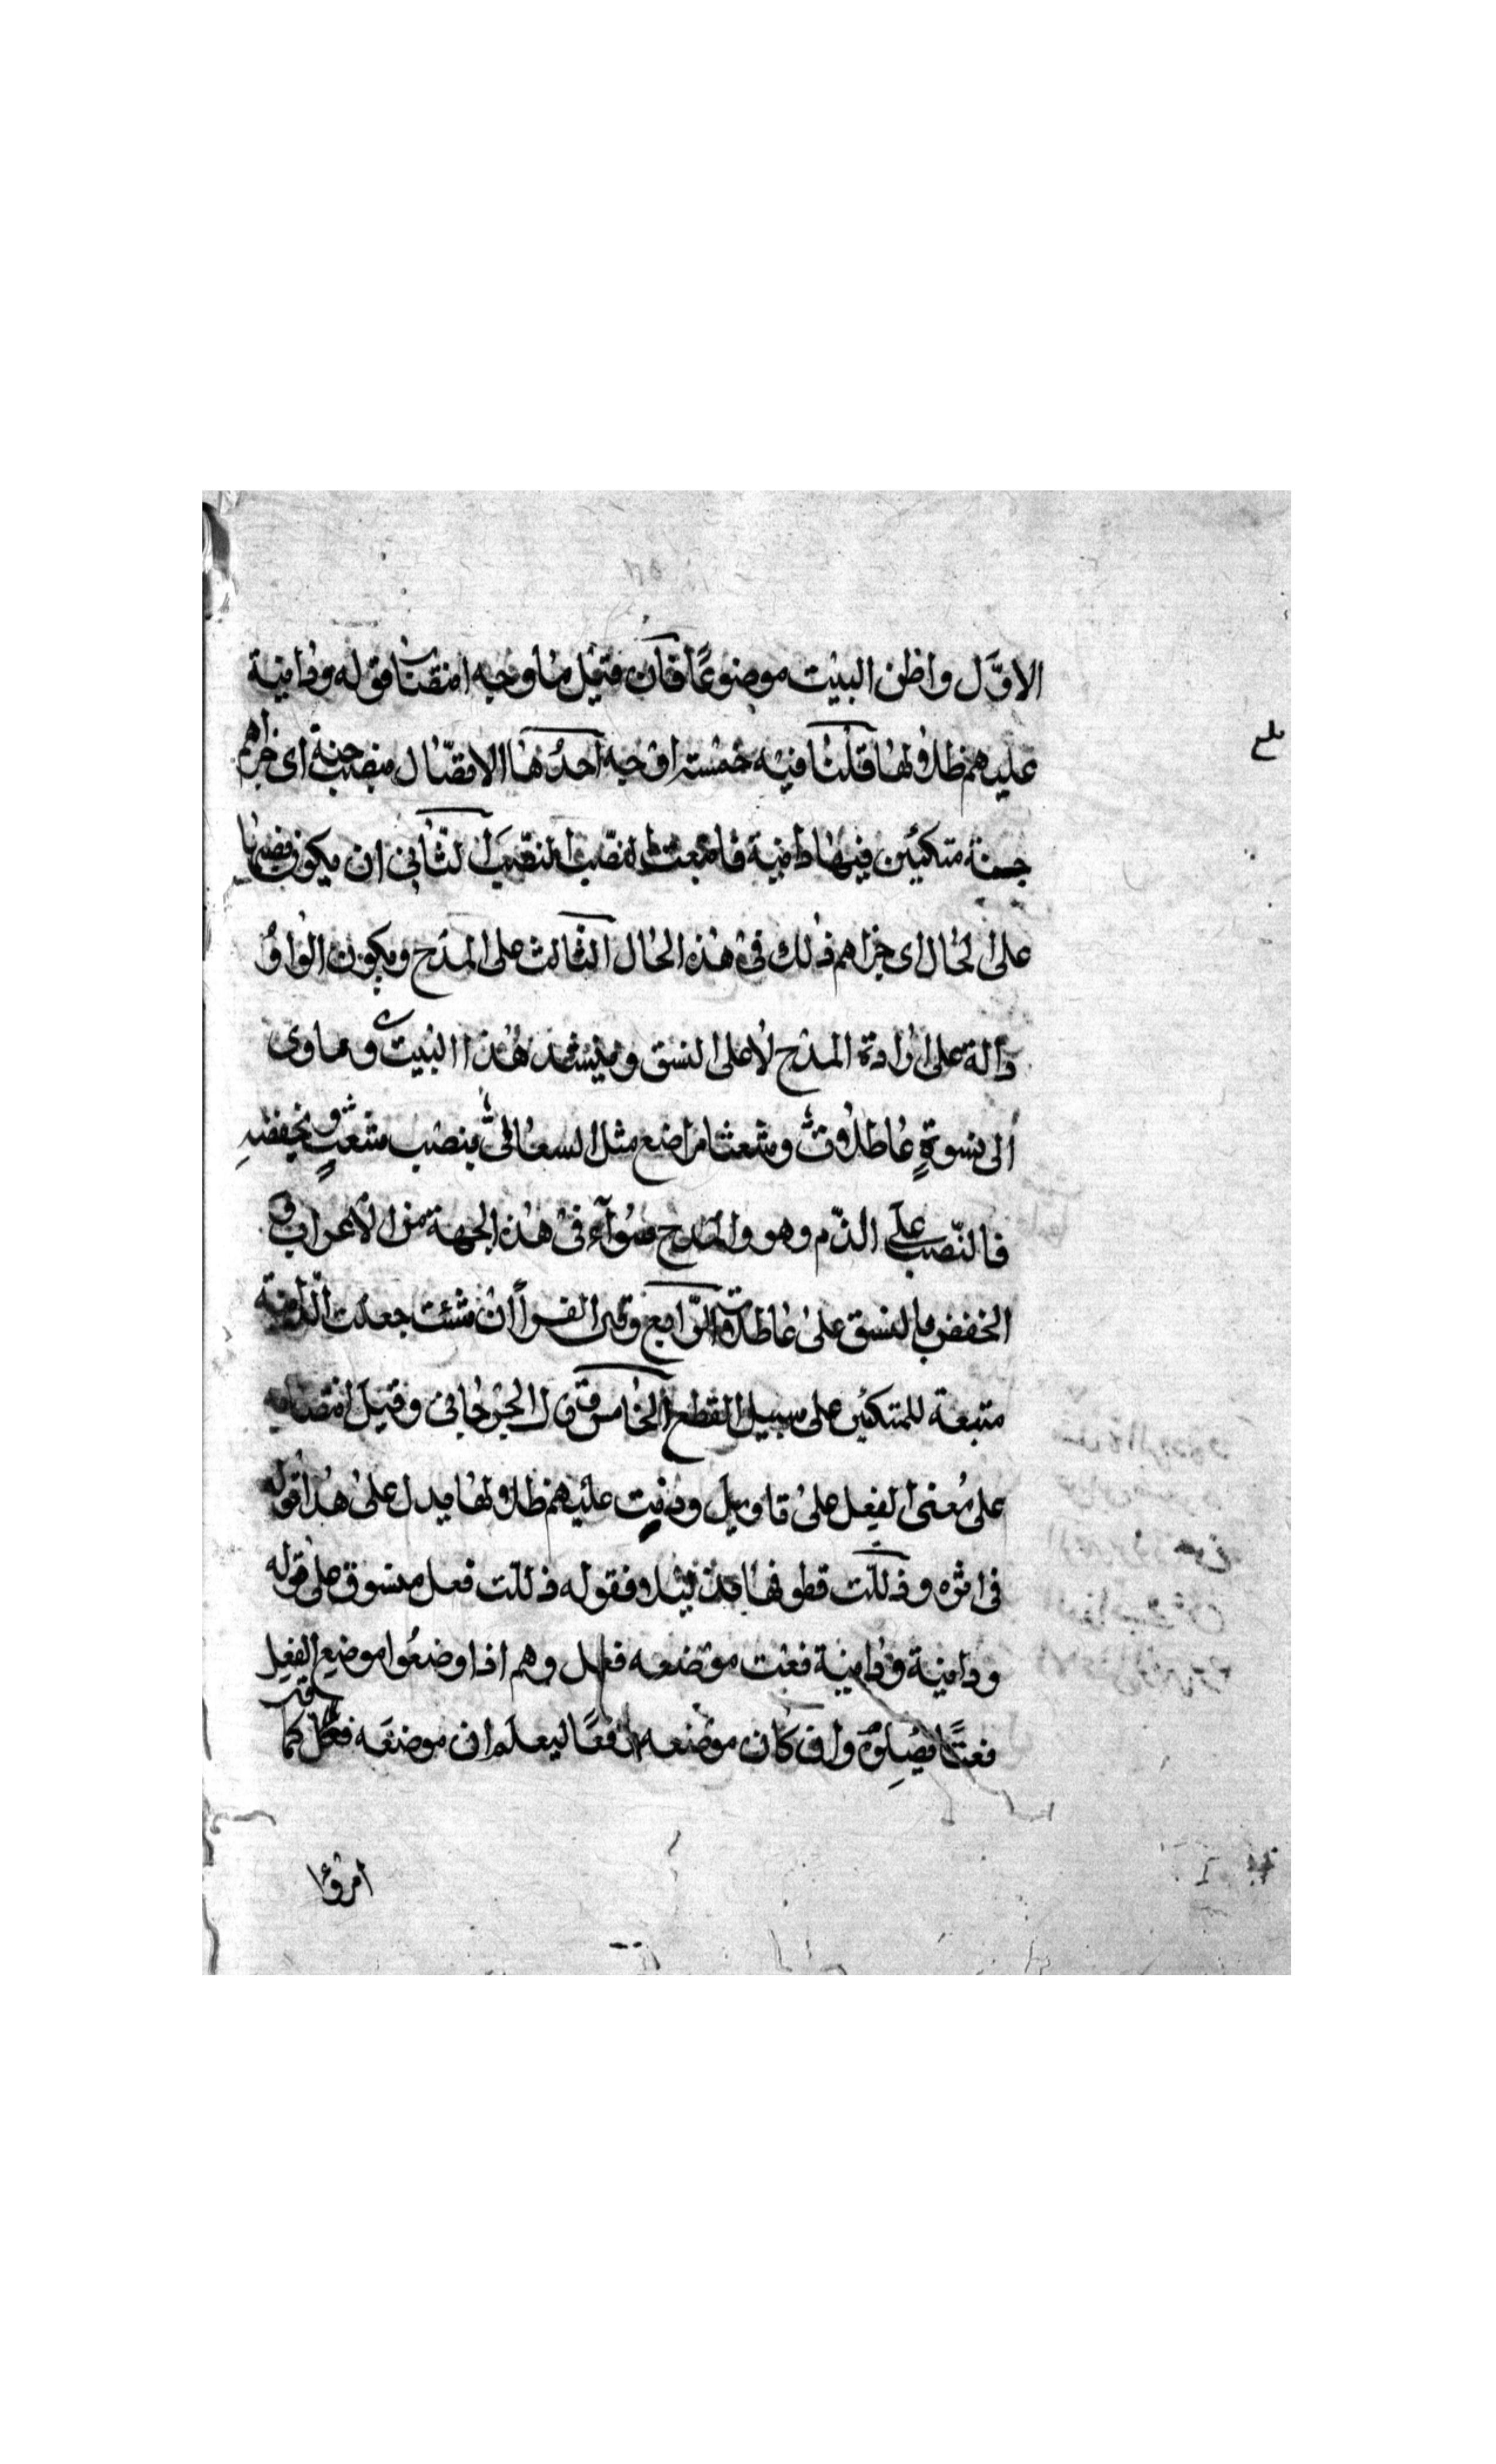 الاوّل واظن البيت موضوعًا فان قيل ما وجه انتصاب قوله ودانية
عليهم ظلالها قلنا فيه خمسة اوجه احدها الاتصال بنصب جنة اى جزاهم
جنة متكئين فيها دانية فاتبعت النصب النصب الثانى ان يكون نصبها
على الحال اى جزاهم ذلك فى هذه الحال الثالث على المدح ويكون الواو
دالة على ارادة المدح لا على النسق وينشد هذا البيت وياوى
الى نسوةٍ عاطلات وشعثا مراضع مثل السعالى بنصب شعث وبخفضه
فالنّصب على الذّم وهو والمدح سوآء فى هذه الجهة من الاعراب و
الخفض بالنسق على عاطلات الرّابع وقال الفرا ان شئت جعلت الدانية
متبعة للمتكئين على سبيل القطع الخامس قال الجرجانى وقيل انتصابه
على معنى الفعل على تاويل ودنيت عليهم ظلالها يدل على هذا قوله
فى اثره وذلّلت قطوفها تذليلا فقوله ذللت فعل منسوق على قوله
ودانية ودانية نعت موضعه فعل وهم اذا وضعوا موضع الفعل
نعتًا نصبوه وان كان موضعه رفعًا ليعلم ان موضعه فعل كما قال
امرؤا